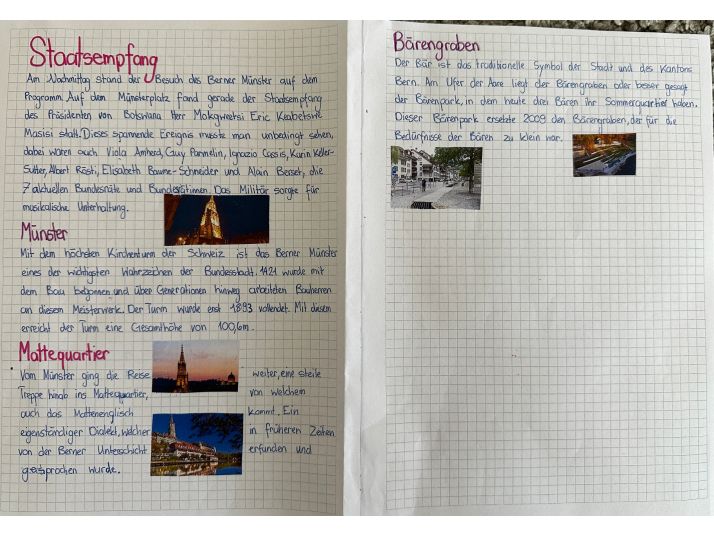 Staatsempfang
Am Nachmittag stand der Besuch des Berner Münster auf dem
Programm. Auf dem Münsterplatz fand gerade der Staatsempfang
des Präsidenten von Botswana Herr Mokgwetsi Eric Keabetswe
Masisi statt. Dieses spannende Ereignis musste man unbedingt sehen,
dabei waren auch Viola Amherd, Guy Parmelin, Ignazio Cassis, Karin Keller-
Sutter, Albert Rösti, Elisabeth Baume-Schneider und Alain Berset, die
7 aktuellen Bundesräte und Bundesrätinnen. Das Militär sorgte für
musikalische Unterhaltung.
Münster
Mit dem höchsten Kirchenturm der Schweiz ist das Berner Münster
eines der wichtigsten Wahrzeichen der Bundesstadt. 1421 wurde mit
dem Bau begonnen und über Generationen hinweg arbeiteten Bauherren
an diesem Meisterwerk. Der Turm wurde erst 1893 vollendet. Mit diesem
erreicht der Turm eine Gesamthöhe von 100,6m.
Mattequartier
Vom Münster ging die Reise weiter, eine steile
Treppe hinab ins Mattequartier, von welchem
auch das Mattenenglisch kommt. Ein
eigenständiger Dialekt, welcher in früheren Zeiten
von der Berner Unterschicht erfunden und
gesprochen wurde.
Bärengraben
Der Bär ist das traditionelle Symbol der Stadt und des Kantons
Bern. Am Ufer der Aare liegt der Bärengraben oder besser gesagt
der Bärenpark, in dem heute drei Bären ihr Sommerquartier haben.
Dieser Bärenpark ersetzte 2009 den Bärengraben, der für die
Bedürfnisse der Bären zu klein war.